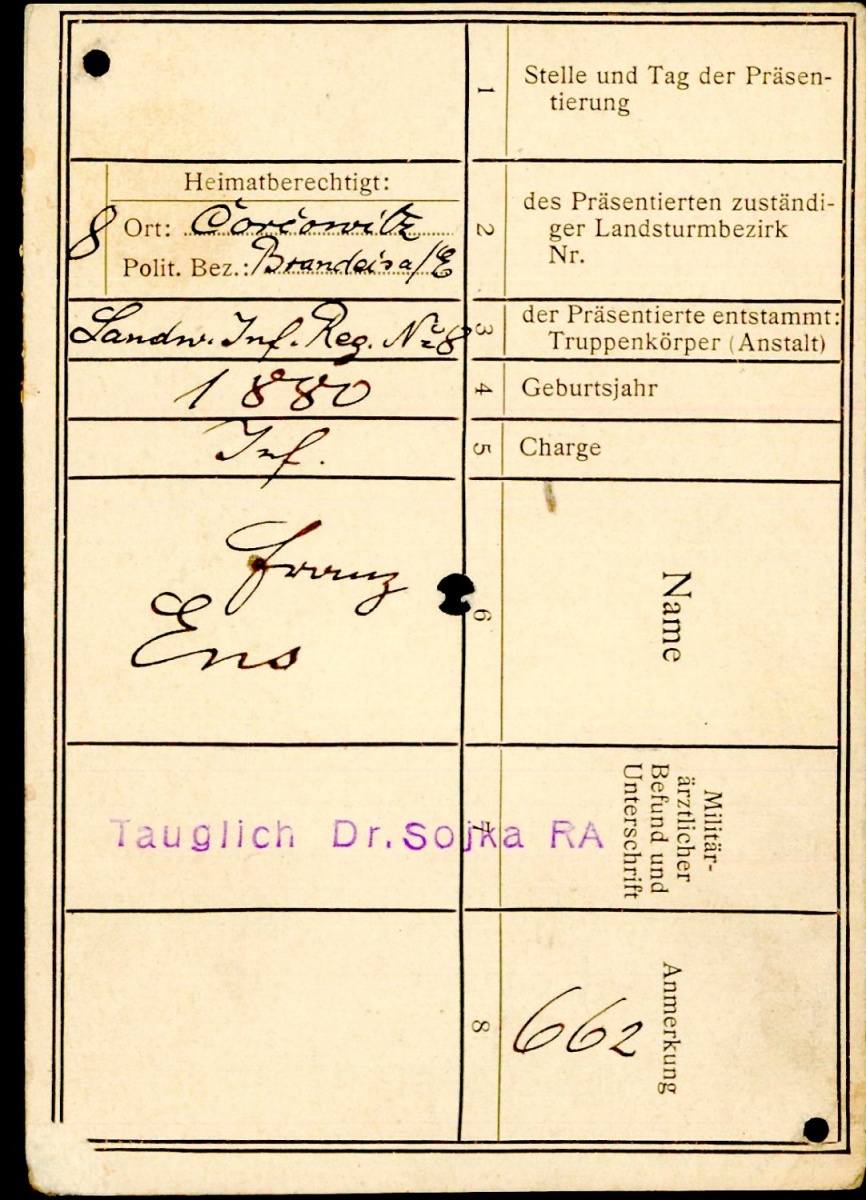 1
Stelle und Tag der Präsen-
tierung
Heimatberechtigt:
8
Ort: Čorčowitz
Polit. Bez.: Brandeis a/E
2
des Präsentierten zuständi-
ger Landsturmbezirk
Nr.
Landw. Inf. Reg. No 8
3
der Präsentierte entstammt:
Truppenkörper (Anstalt)
1880
4
Geburtsjahr
Inf.
5
Charge
Franz
Ens
6
Name
Tauglich Dr. Sojka RA
7
Militär-
ärztlicher
Befund und
Unterschrift
8
662
Anmerkung